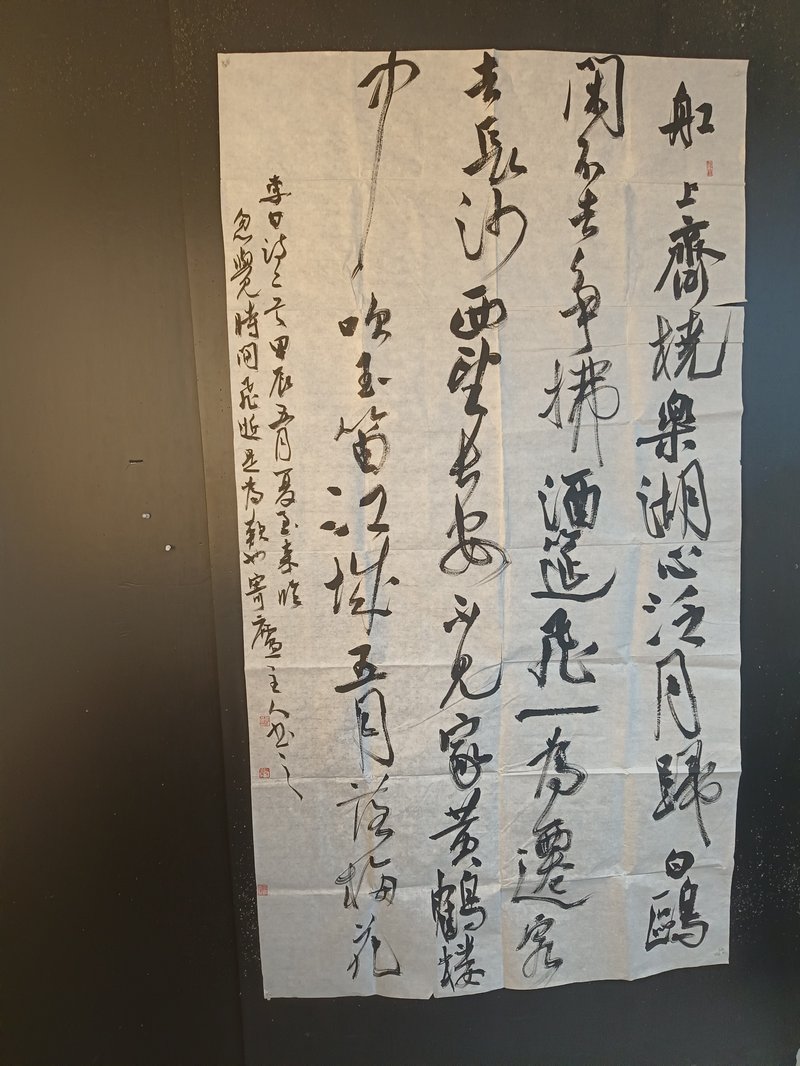 舡上齊橈樂湖心泛月歸白鷗
閑不去爭拂酒筵飛一為遷客
去長沙西望長安不見家黃鶴樓
中吹玉笛江城五月落梅花
李白詩二首甲辰五月夏至來臨
忽覺時間飛逝是為歎也寄廬主人書之